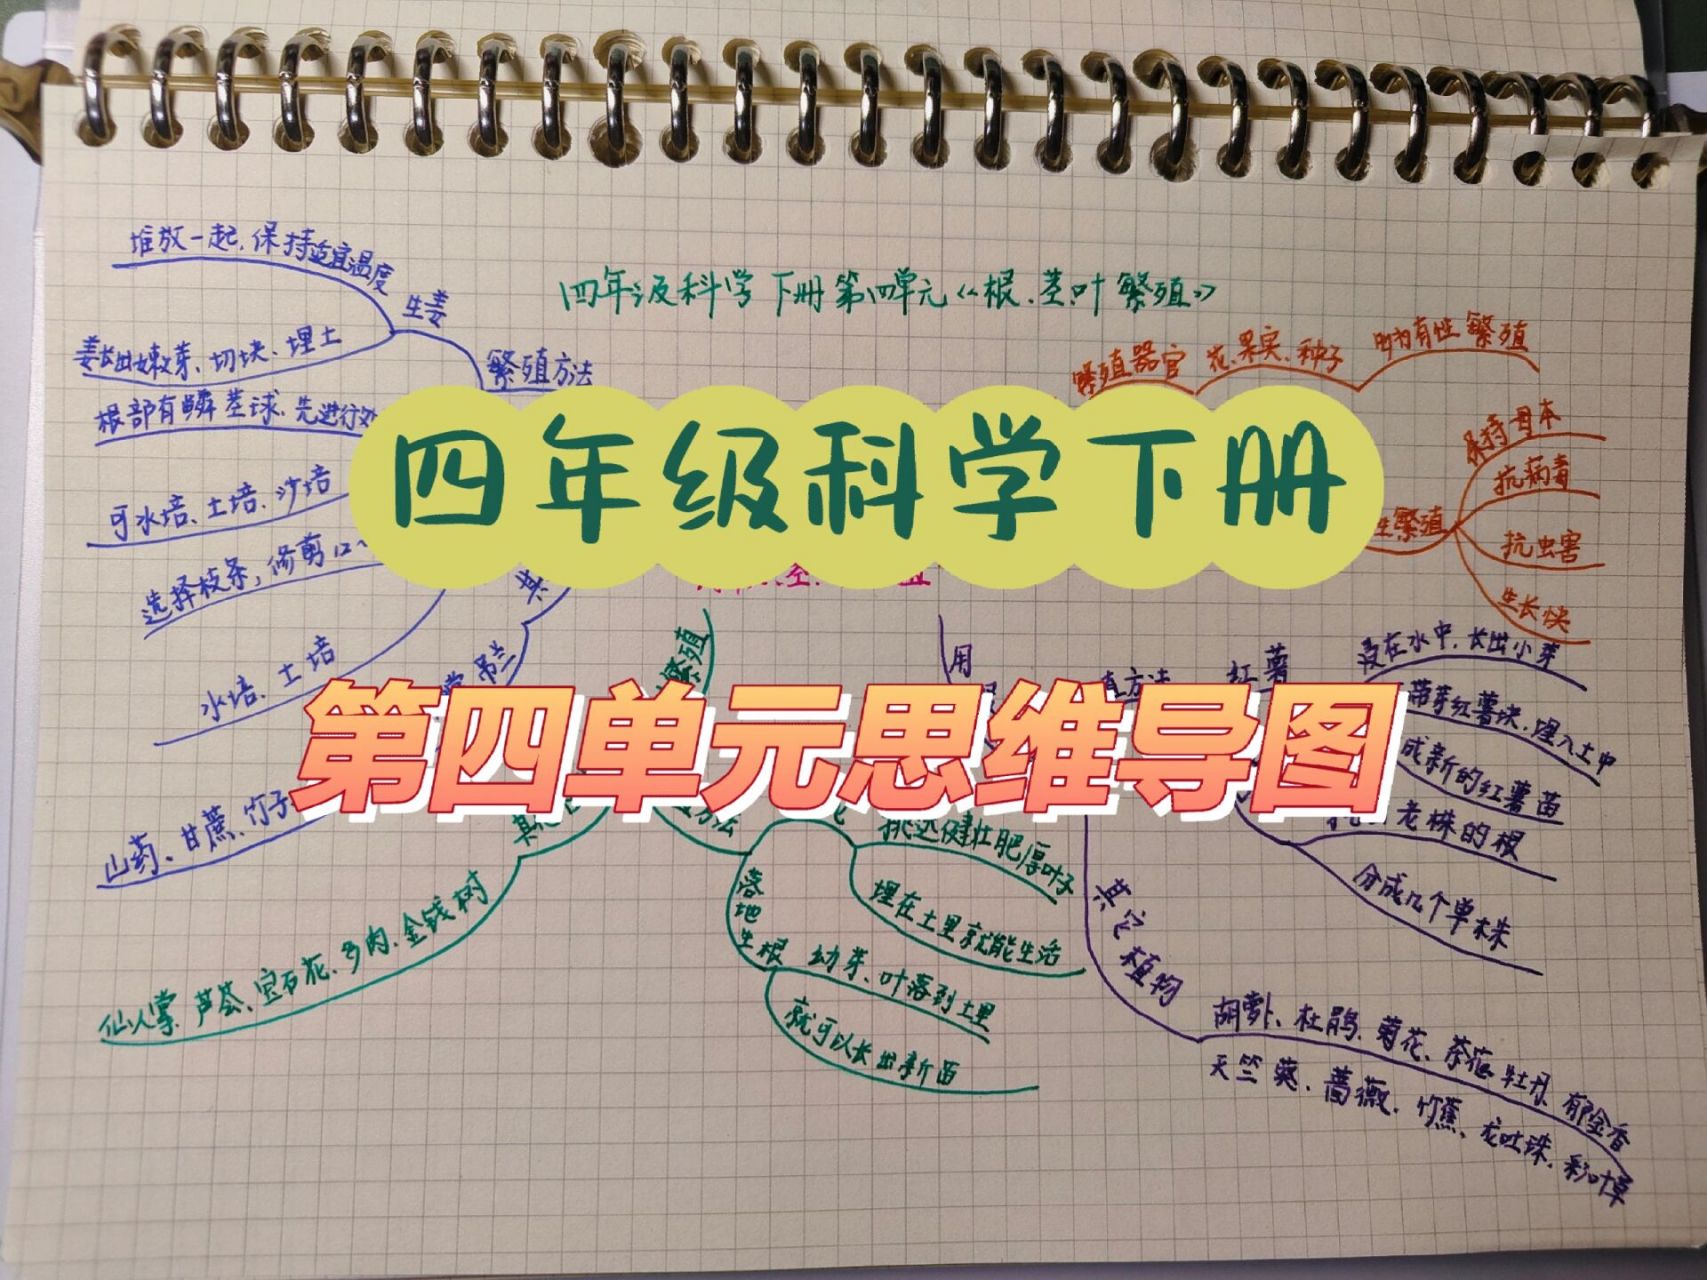 四年级科学下册第四单元《根、茎、叶繁殖》
四年级科学下册
第四单元思维导图
堆放一起、保持适宜温度
生姜
姜长出嫩芽、切块、埋土
繁殖方法
根部有鳞茎球、先进行
可水培、土培、沙培
选择枝条,修剪
水培、土培
吊兰
山药、甘蔗、竹子
繁殖器官
花、果实、种子
有性繁殖
繁殖
保持母本
抗病毒
抗虫害
生长快
用
方法
红薯
浸在水中、长出小芽
带芽红薯块、埋入土中
成新的红薯苗
老株的根
分成几个单株
其它植物
胡萝卜、杜鹃、菊花、茶花、牡丹、郁金香
天竺葵、蔷薇、竹蕉、龙吐珠、彩叶草
繁殖
方法
挑选健壮肥厚叶子
埋在土里就能生活
落地生根
幼芽、叶落到土里
就可以长出新苗
仙人掌、芦荟、宝石花、多肉、金钱树